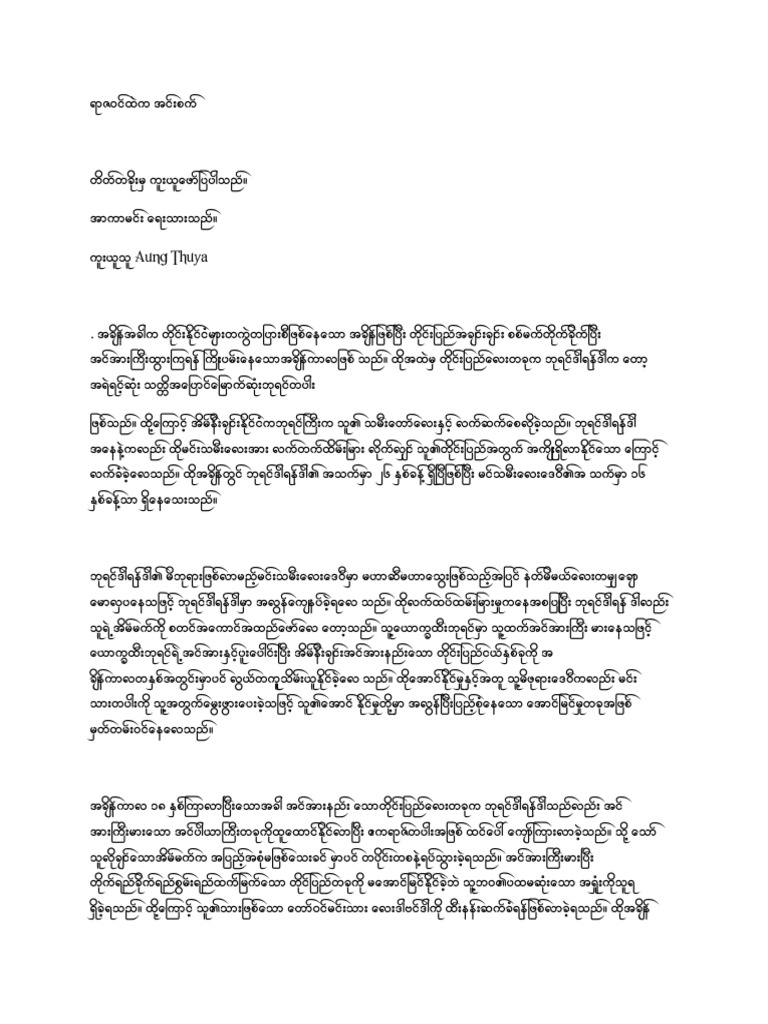 ရာဇဝင်ထဲက အင်းစက်
တိတ်တခိုးမှ ကူးယူဖော်ပြပါသည်။
အာကာမင်း ရေးသားသည်။
ကူးယူသူ Aung Thuya
. အချိန်အခါက တိုင်းနိုင်ငံများတကွဲတပြားစီဖြစ်နေသော အချိန်ဖြစ်ပြီး တိုင်းပြည်အချင်းချင်း စစ်မက်တိုက်ခိုက်ပြီး
အင်အားကြီးထွားကြရန် ကြိုးပမ်းနေသောအချိန်ကာလဖြစ် သည်။ ထိုအထဲမှ တိုင်းပြည်လေးတခုက ဘုရင်ဒါရန်ဒါက တော့
အရဲရင့်ဆုံး သတ္တိအပြောင်မြောက်ဆုံးဘုရင်တပါး
ဖြစ်သည်။ ထို့ကြောင့် အိမ်နီးချင်းနိုင်ငံကဘုရင်ကြီးက သူ၏ သမီးတော်လေးနှင့် လက်ဆက်စေလိုခဲ့သည်။ ဘုရင်ဒါရန်ဒါ
အနေနဲ့ကလည်း ထိုမင်းသမီးလေးအား လက်တက်ထိမ်းမြား လိုက်လျှင် သူ၏တိုင်းပြည်အတွက် အကျိုးရှိလာနိုင်သော ကြောင့်
လက်ခံခဲ့လေသည်။ ထိုအချိန်တွင် ဘုရင်ဒါရန်ဒါ၏ အသက်မှာ ၂၆ နှစ်ခန့် ရှိပြီဖြစ်ပြီး မင်သမီးလေးဒေဝီ၏အ သက်မှာ ၁၆
နှစ်ခန့်သာ ရှိနေသေးသည်။
ဘုရင်ဒါရန်ဒါ၏ မိဘုရားဖြစ်လာမည့်မင်းသမီးလေးဒေဝီမှာ မဟာဆီမဟာသွေးဖြစ်သည့်အပြင် နတ်မိမယ်လေးတမျှချော
မောလှပနေသဖြင့် ဘုရင်ဒါရန်ဒါမှာ အလွန်ကျေနပ်ခဲ့ရလေ သည်။ ထိုလက်ထပ်ထမ်းမြားမှုကနေအစပြုပြီး ဘုရင်ဒါရန် ဒါလည်း
သူရဲ့အိမ်မက်ကို စတင်အကောင်အထည်ဖော်လေ တော့သည်။ သူ့ယောက္ခထီးဘုရင်မှာ သူ့ထက်အင်အားကြီး မားနေသဖြင့်
ယောက္ခထီးဘုရင်ရဲ့အင်အားနှင့်ပူးပေါင်းပြီး အိမ်နီးချင်းအင်အားနည်းသော တိုင်းပြည်ငယ်နှစ်ခုကို အ
ချိန်ကာလတနှစ်အတွင်းမှာပင် လွယ်တကူသိမ်းယူနိုင်ခဲ့လေ သည်။ ထိုအောင်နိုင်မှုနှင့်အတူ သူ့မိဖုရားဒေဝီကလည်း မင်း
သားတပါးကို သူ့အတွက်မွေးဖွားပေးခဲ့သဖြင့် သူ၏အောင် နိုင်မှုတို့မှာ အလွန်ပြီးပြည့်စုံနေသော အောင်မြင်မှုတခုအဖြစ်
မှတ်တမ်းဝင်နေလေသည်။
အချိန်ကာလ ၁၈ နှစ်ကြာလာပြီးသောအခါ အင်အားနည်း သောတိုင်းပြည်လေးတခုက ဘုရင်ဒါရန်ဒါသည်လည်း အင်
အားကြီးမားသော အင်ပါယာကြီးတခုကိုထူထောင်နိုင်လာပြီး ဧကရာဇ်တပါးအဖြစ် ထင်ပေါ် ကျော်ကြားလာခဲ့သည်။ သို့ သော်
သူလိုချင်သောအိမ်မက်က အပြည့်အစုံမဖြစ်သေးခင် မှာပင် တပိုင်းတစနဲ့ရပ်သွားခဲ့ရသည်။ အင်အားကြီးမားပြီး
တိုက်ရည်ခိုက်ရည်စွမ်းရည်ထက်မြက်သော တိုင်ပြည်တခုကို မအောင်မြင်နိုင်ခဲ့ဘဲ သူ့ဘဝ၏ပထမဆုံးသော အရှုံးကိုသူရ
ရှိခဲ့ရသည်။ ထို့ကြောင့် သူ၏သားဖြစ်သော တော်ဝင်မင်းသား လေးဒါဗင်ဒါကို ထီးနန်းဆက်ခံရန်ဖြစ်လာခဲ့ရသည်။ ထိုအချိန်